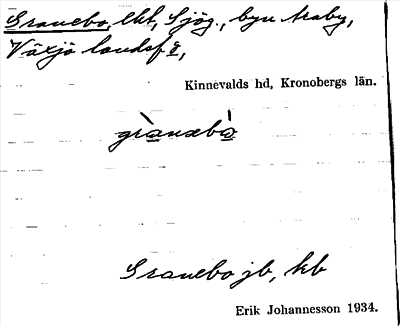 Granebo, lht, Sjög., byn Araby,
Växjö landsf ş,
Kinnevalds hd, Kronobergs län.
grànebò
Granebo jb, kb
Erik Johannesson 1934.